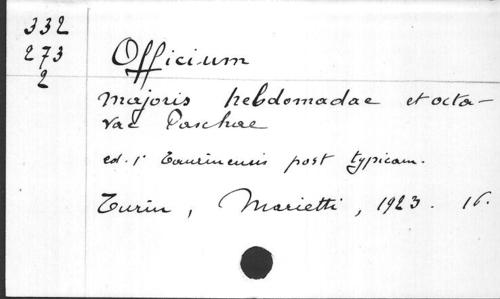 332
273
2
Officium
majoris hebdomadae et octa-
vae Paschae
ed. 1ª Taurinensis post typicam.
Turin, Marietti, 1923. 16.